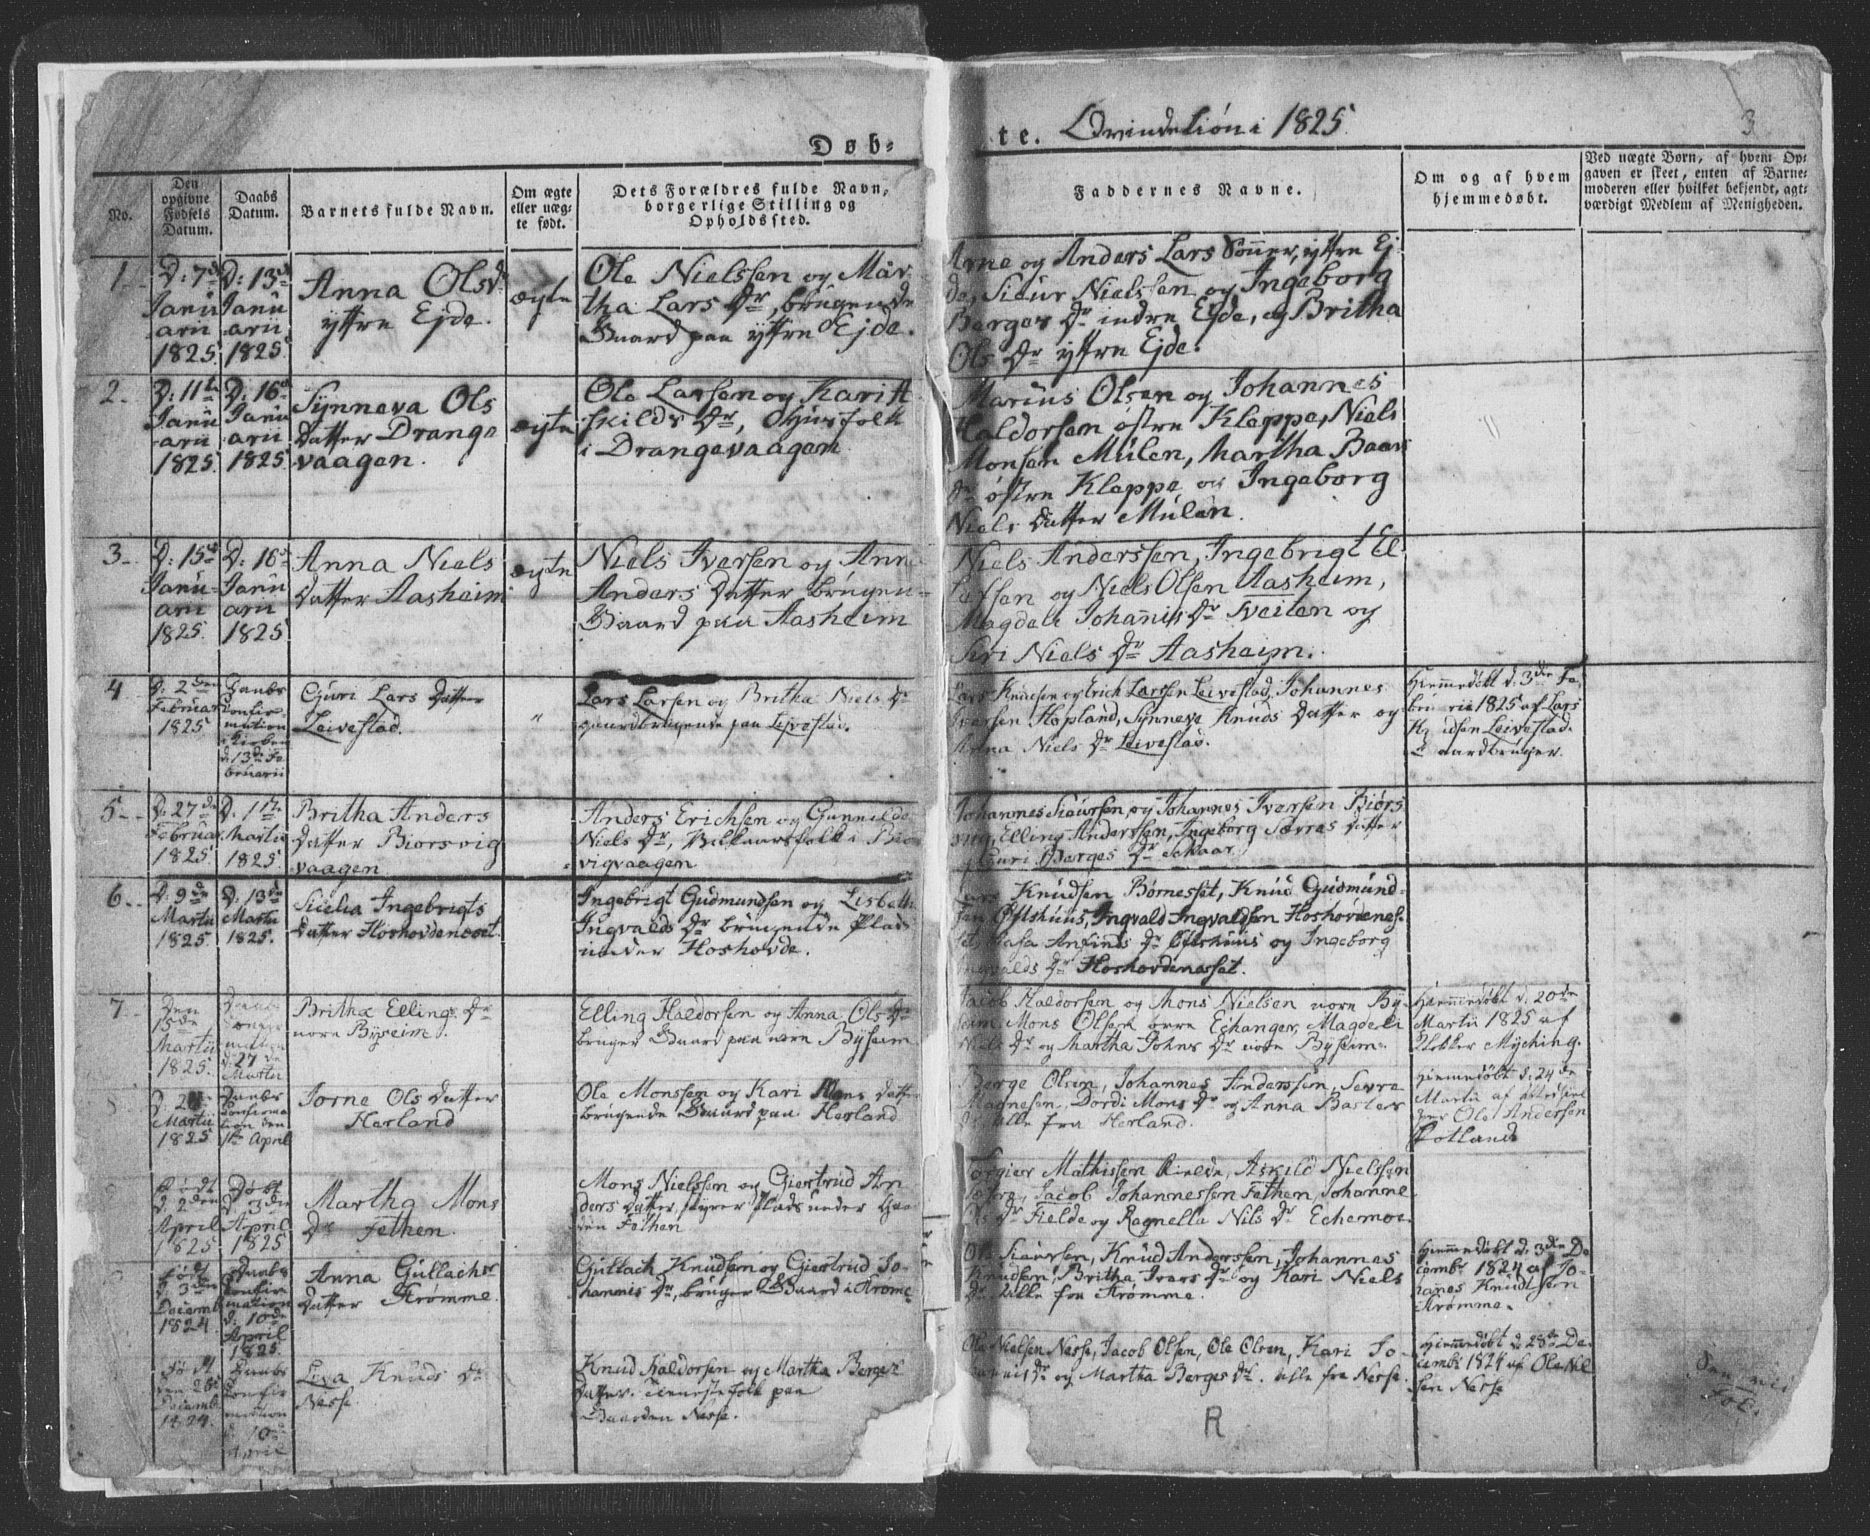 Døb-
te. Qvindekiøn i 1825.
3
No.
Den opgivne Fødsels Datum.
Daabs Datum.
Barnets fulde Navn.
Om ægte eller uægte født.
Dets Forældres fulde Navn, borgerlige Stilling og Opholdssted.
Faddernes Navne.
Om og af hvem hjemmedøbt.
Ved uægte Børn, af hvem Opgaven er skeet, enten af Barnemoderen eller hvilket bekjendt, agtværdigt Medlem af Menigheden.
1.
D: 7de
Janu
arii
1825
D: 13de
Janu
arii
1825.
Anna Olsdr
yttre Ejde.
ægte
Ole Nielssen og Mar-
tha Lars Dr, brugende
Gaard paa yttre Ejde.
Arne og Anders Lars Sønner, yttre Ej-
de, Siur Nielssen og Ingeborg
Berges Dr indre Ejde, og Britha
Ols Dr yttre Ejde.
2.
D: 11te
Janu
arii
1825
D: 16de
Janu
arii
1825
Synneva Ols
Datter Drange
vaagen.
ægte
Ole Larsen og Kari A-
skilds Dr, Huusfolk
i Drangevaagen
Marius Olsen og Johannes
Haldorsen østre Kleppe, Niels
Monsen Mulen, Martha Baars
Dr østre Kleppe og Ingeborg
Niels Datter Mulen.
3.
D: 15de
Janu-
arii
1825.
D: 16de
Janu
arii
1825
Anna Niels
Datter Aasheim
ægte
Niels Iversen og Ann
Anders Datter brugen-
Gaard paa Aasheim
Niels Anderssen, Ingebrigt El-
lefsen og Niels Olsen Aasheim,
Magdeli Johannis Dr Sveiten og
Siri Niels Dr Aasheim.
4
D: 2den
Februar
1825
Daabs
Confir
mation
i Kirken
d: 13de Fe
bruarii
Guri Lars Datter
Leivestad.
"
Lars Larsen og Britha Niels Dr
gaardbrugende paa Leivestad.
Lars Knudsen og Erich Larssen Leivestad, Johannes
Iversen Hopland, Synneve Knuds Datter og
Anna Niels Dr Leivestad.
Hiemmedøbt d. 3die Fe-
bruarii 1825 af Lars
Knudsen Leivestad.
Gaardbruger.
5.
D: 27de
Februar
1825
D. 1te
Martii
1825
Britha Anders
Datter Biorsvig
vaagen
Anders Erichsen og Gunnilde
Niels Dr, Vilkaarsfolk i Biors
vigvaagen
Johannes Siursen, og Johannes Iversen Biørs
vig, Elling Anderssen, Ingeborg Sævres Datter
Guri Berges Dr Skaar
6.
D. 9de
Martii
1825
D. 13de
Martii
1825.
Sicelia Ingebrigts
Datter Hoshovdeneset.
Ingebrigt Gudmundsen og Lisbeth
Ingvalds Dr brugende Plads
under Hoshovde.
Lars Knudsen Børnesset, Knud Gudmund-
sen Øfsthuus, Ingvald Ingvaldsen Hoshovdenes-
set, Aasa Anfinds Dr Øfsthuus og Ingeborg
Ingvalds Dr Hoshovdenesset.
7
Den
15de
Martii
1825.
d. 27de
Martii
Britha Ellings Dr
nore Byseim.
Elling Haldorsen og Anna Ols Dr
bruger Gaard paa nore Byseim
Jacob Haldorsen og Mons Nielsen nore By-
seim, Mons Olsen øvre Echanger, Magdeli
Niels Dr og Martha Johns Dr nore Byseim.
Hiemmedøbt d. 20de
Martii 1825 af
Klokker Myching.
Martii
1825
Daabs
Confirma
tion den
1te April
Jorne Ols Datter
Herland
Ole Monssen og Kari Mons Datter
brugende Gaard paa Herland
Berge Olsen, Johannes Anderssen, Sevre
Magnesen, Dordi Mons Dr og Anna Basters
Dr alle fra Herland.
Hiemmedøbt d. 24de
Martii af
Ole Andersen
Kotland
Født
d. 2den
April
1825
Døbt
d. 3die
April
1825
Martha Mons
Dr Fethen.
Mons Nielssen og Giertrud An
ders Datter, styrer Plads under Gaa
den Fethen
Torgier Mathissen Rielde, Askild Nielssen
Jacob Johannessen Fethen, Johanne
Ols Dr Fielde og Ragnella Nils Dr Echemoe.
Født
d. 3den
Decemb.
1824
Daabs
Confir
mation
d: 10de
April
1825.
Anna Gullachs
Datter Strømme.
Gullach Knudsen og Giertrud Jo-
hannis Dr, bruger Gaard i Strømme
Ole Siurssen, Knud Anderssen, Johannes
Knudsen, Britha Ivers Dr og Kari Niels
Dr alle fra Strømme.
Hiemmedøbt d. 3die De-
cembr 1824 af Jo-
hanes Knudtsen
Strømme.
Født
den 28de
Decemb.
1824.
Daabs
Confir
mation
d. 10de
April
Liva Knuds Dr
Nesse
Knud Haldorsen og Martha Berges
Datter. tienestefolk paa
Gaarden Nesse.
Ole Nielsen Nesse, Jacob Olsen, Ole Olsen, Kari Jo-
hannis Dr og Martha Berges Dr. alle fra Nesse.
Hiemmedøbt d. 28de De-
cembr 1824 af Ole Niel
sen Nesse
R